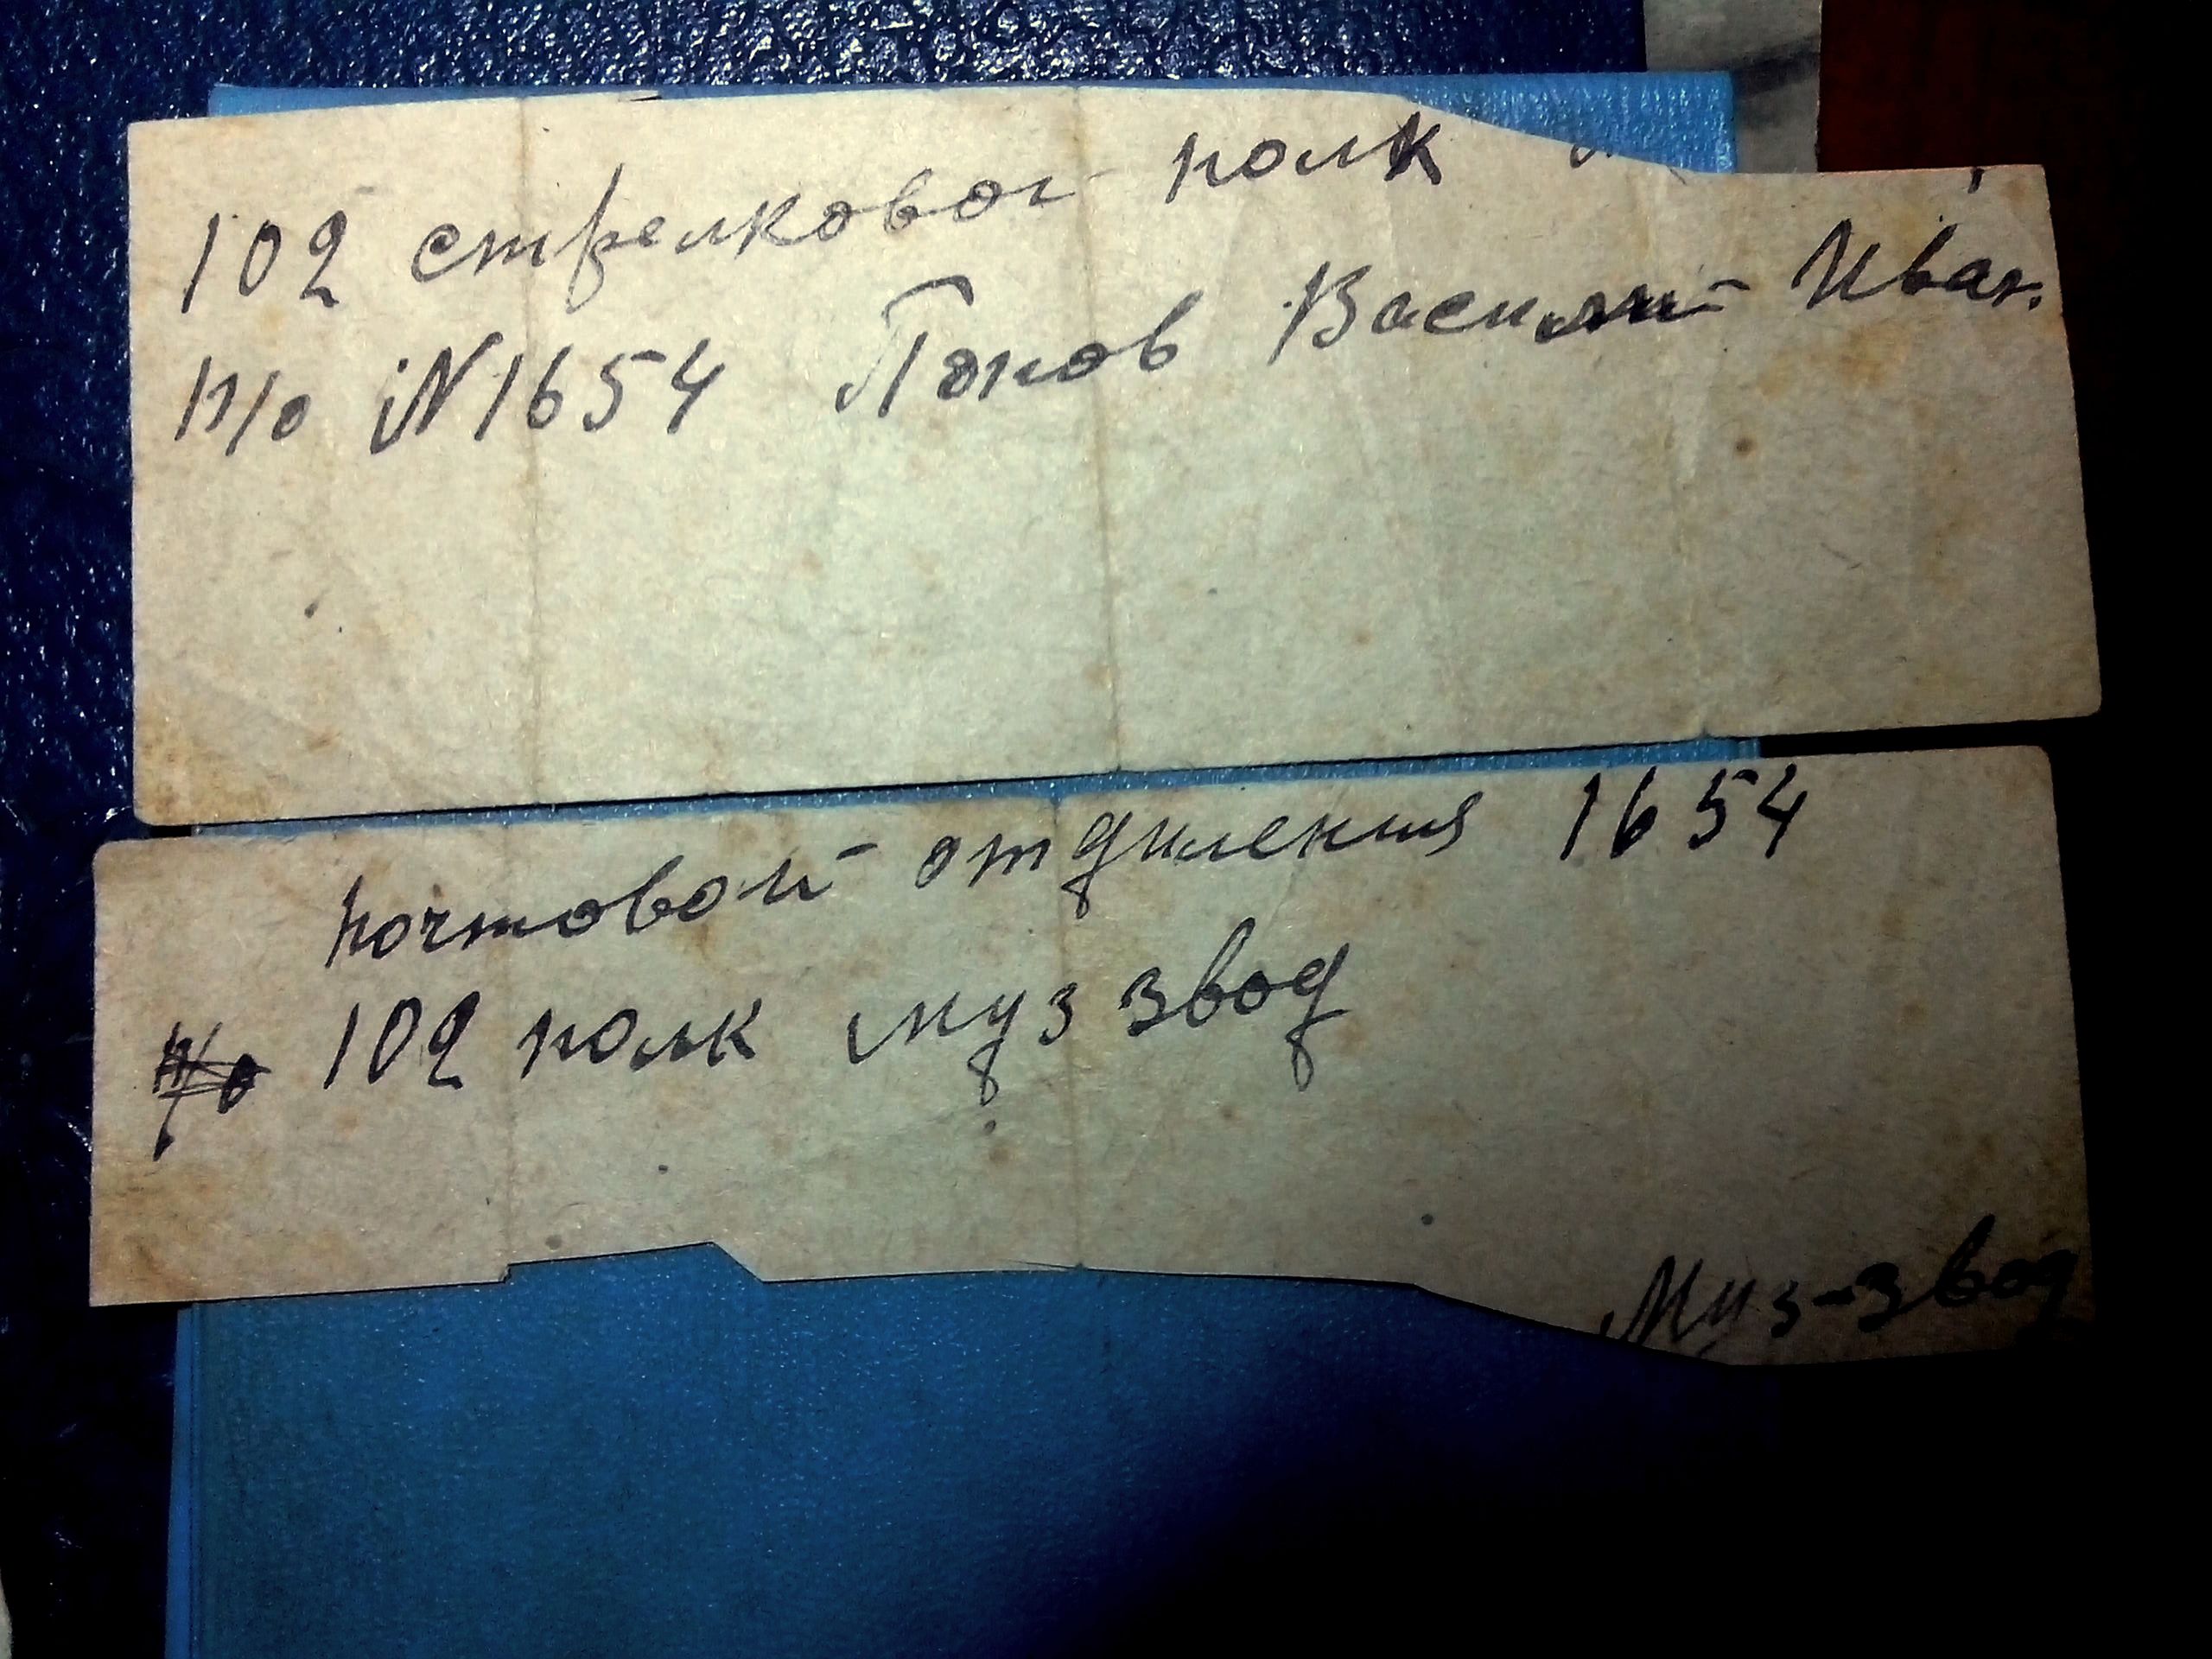 102 стрелковой полк
п/о №1654 Попов Василий Иван.
почтовой отдиления 1654
п/о 102 полк муз звод
Муз-звод